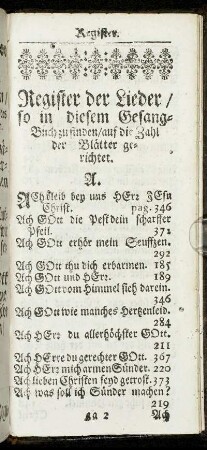 Register.
Register der Lieder /
so in diesem Gesang-
Buch zu finden / auf die Zahl
der Blätter ge-
richtet.
A.
ACh bleib bey uns HErr JEsu
Christ. pag. 346
Ach GOtt die Pest dein scharffer
Pfeil. 372
Ach GOtt erhör mein Seuffzen.
292
Ach GOtt thu dich erbarmen. 185
Ach GOtt und HErr. 189
Ach GOtt vom Himmel sieh darein.
346
Ach GOtt wie manches Hertzenleid.
284
Ach HErr du allerhöchster GOtt.
211
Ach HErre du gerechter GOtt. 367
Ach HErr mich armen Sünder. 220
Ach lieben Christen seyd getrost. 373
Ach was soll ich Sünder machen?
219
Aa 2 Ach